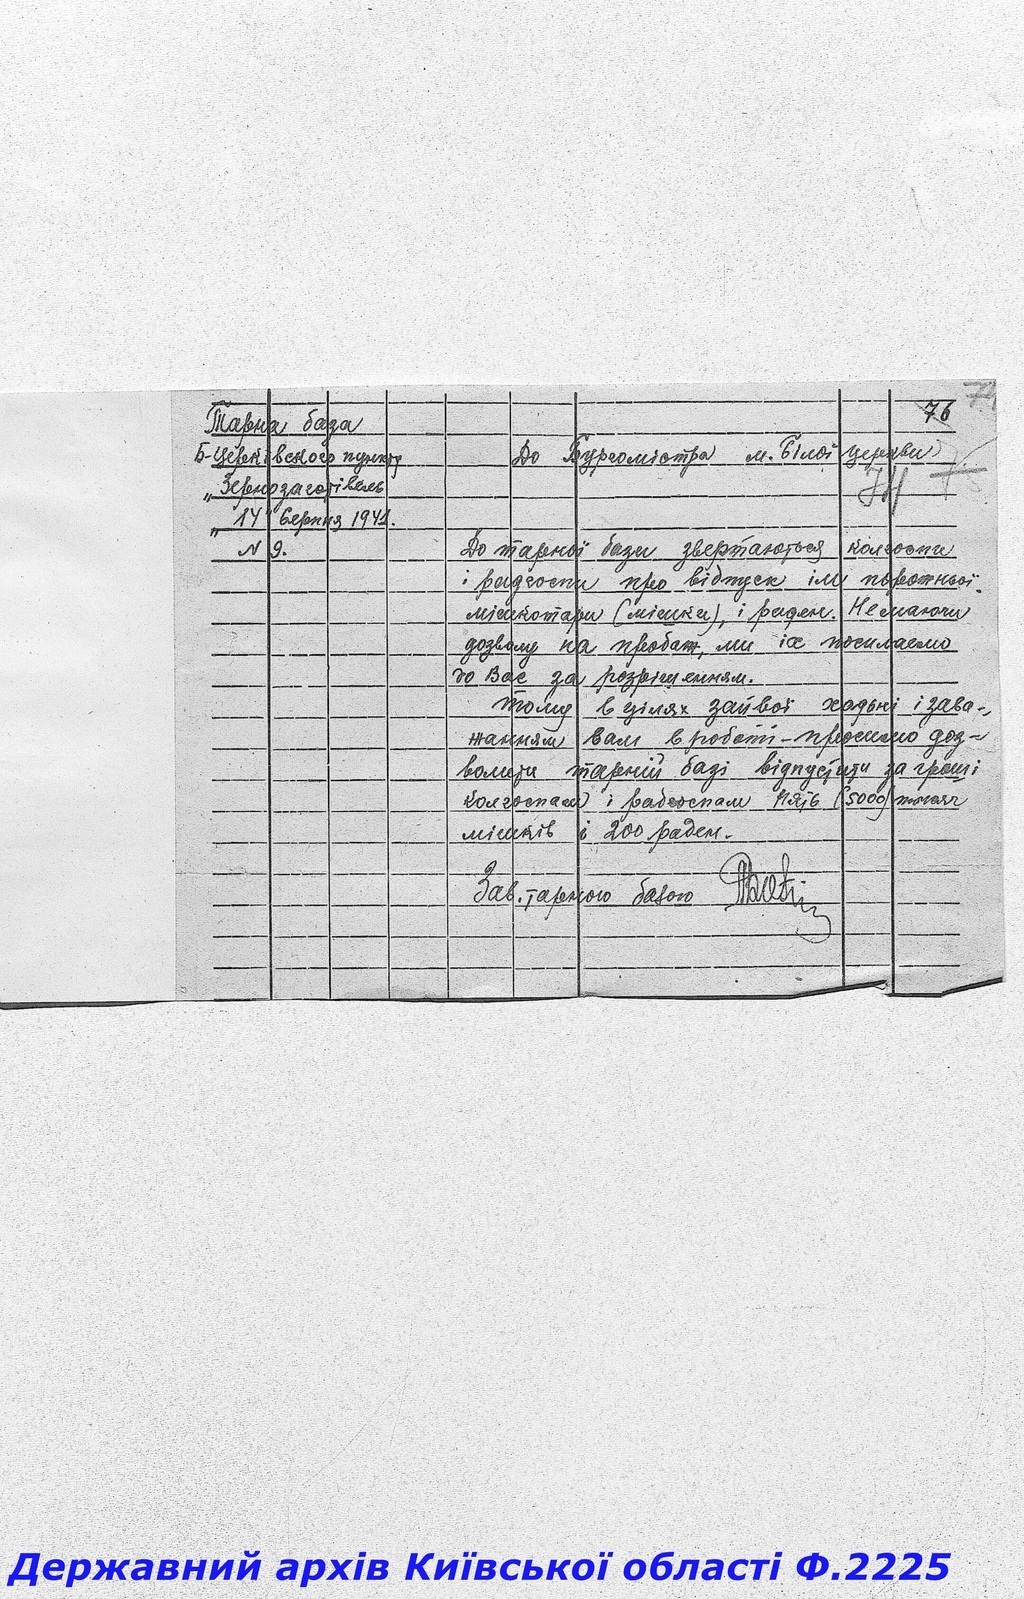 76
Тарна база
Б-Церківського пункту
До Бургомістра м. Білої церкви
„Зернозаготівель
74
„14" Серпня 1941.
N 9.
До тарної бази звертаються колгоспи
і радгоспи про відпуск їм порожньої
мішкотари (мішки), і раден. Немаючи
дозволу на продаж, ми їх посилаємо
до Вас за розрішенням.
Тому в цілях зайвої ходьні і зава-
жанням вам в роботі - просимо доз-
волити тарній базі відпустити за гроші
колгоспам і радгоспам Пять (5000) тисяч
мішків і 200 раден.
Зав. тарною базою
Державний архів Київської області Ф.2225